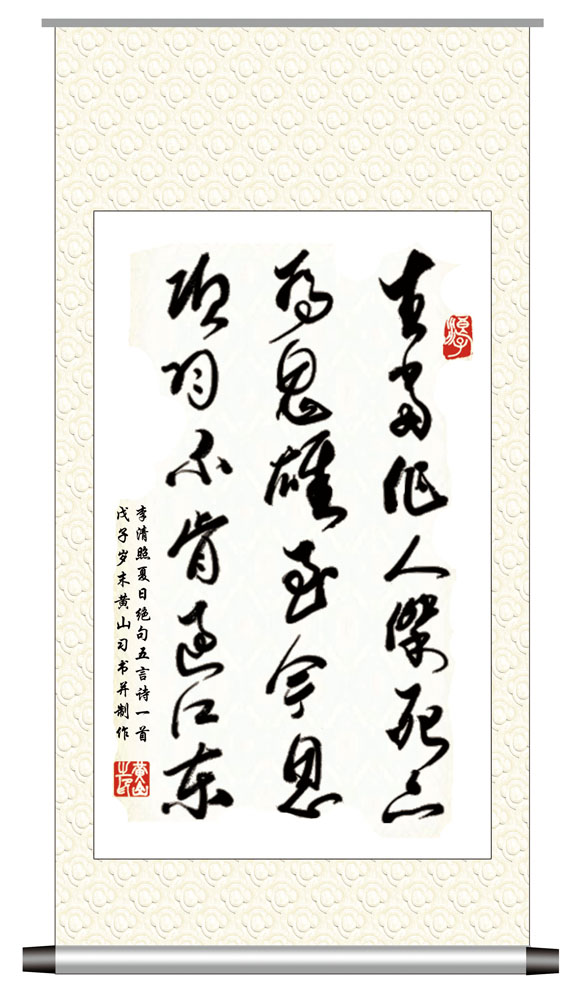 生当作人傑死亦
为鬼雄至今思
项羽不肯过江东
李清照夏日绝句五言诗一首
戊子岁末黄山习书并制作